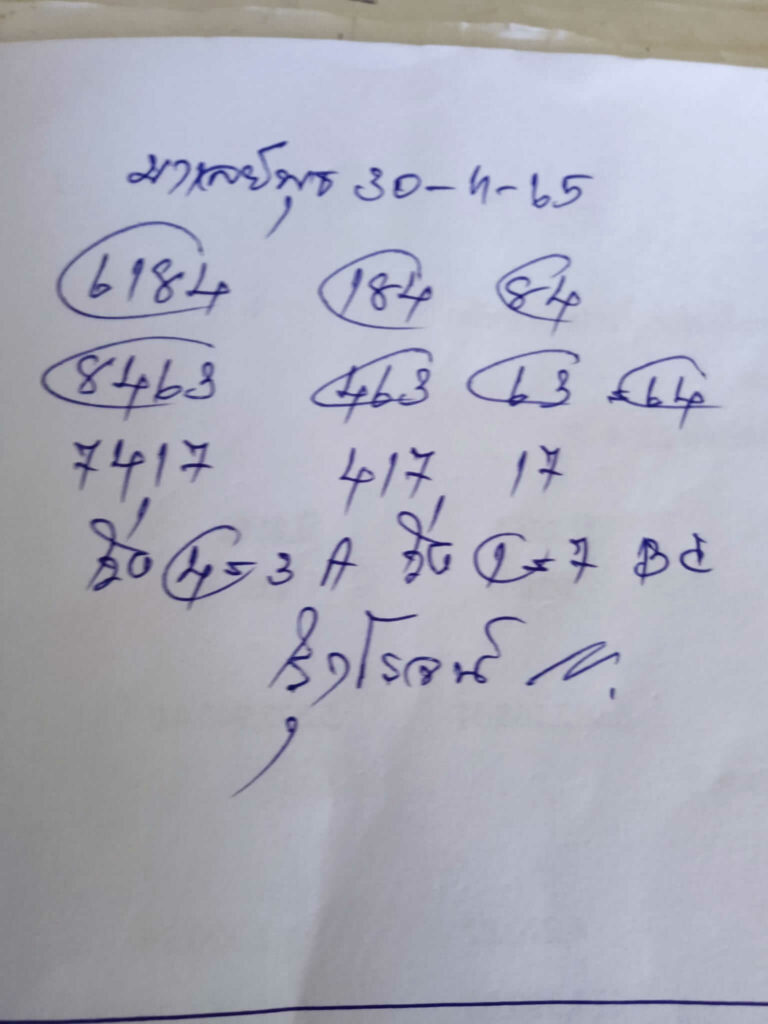 มาเลย์พุธ 30-4-65
6184 184 84
8463 463 63 = 64
7417 417 17
วิ่ง 4=3 A วิ่ง 1=7 B C